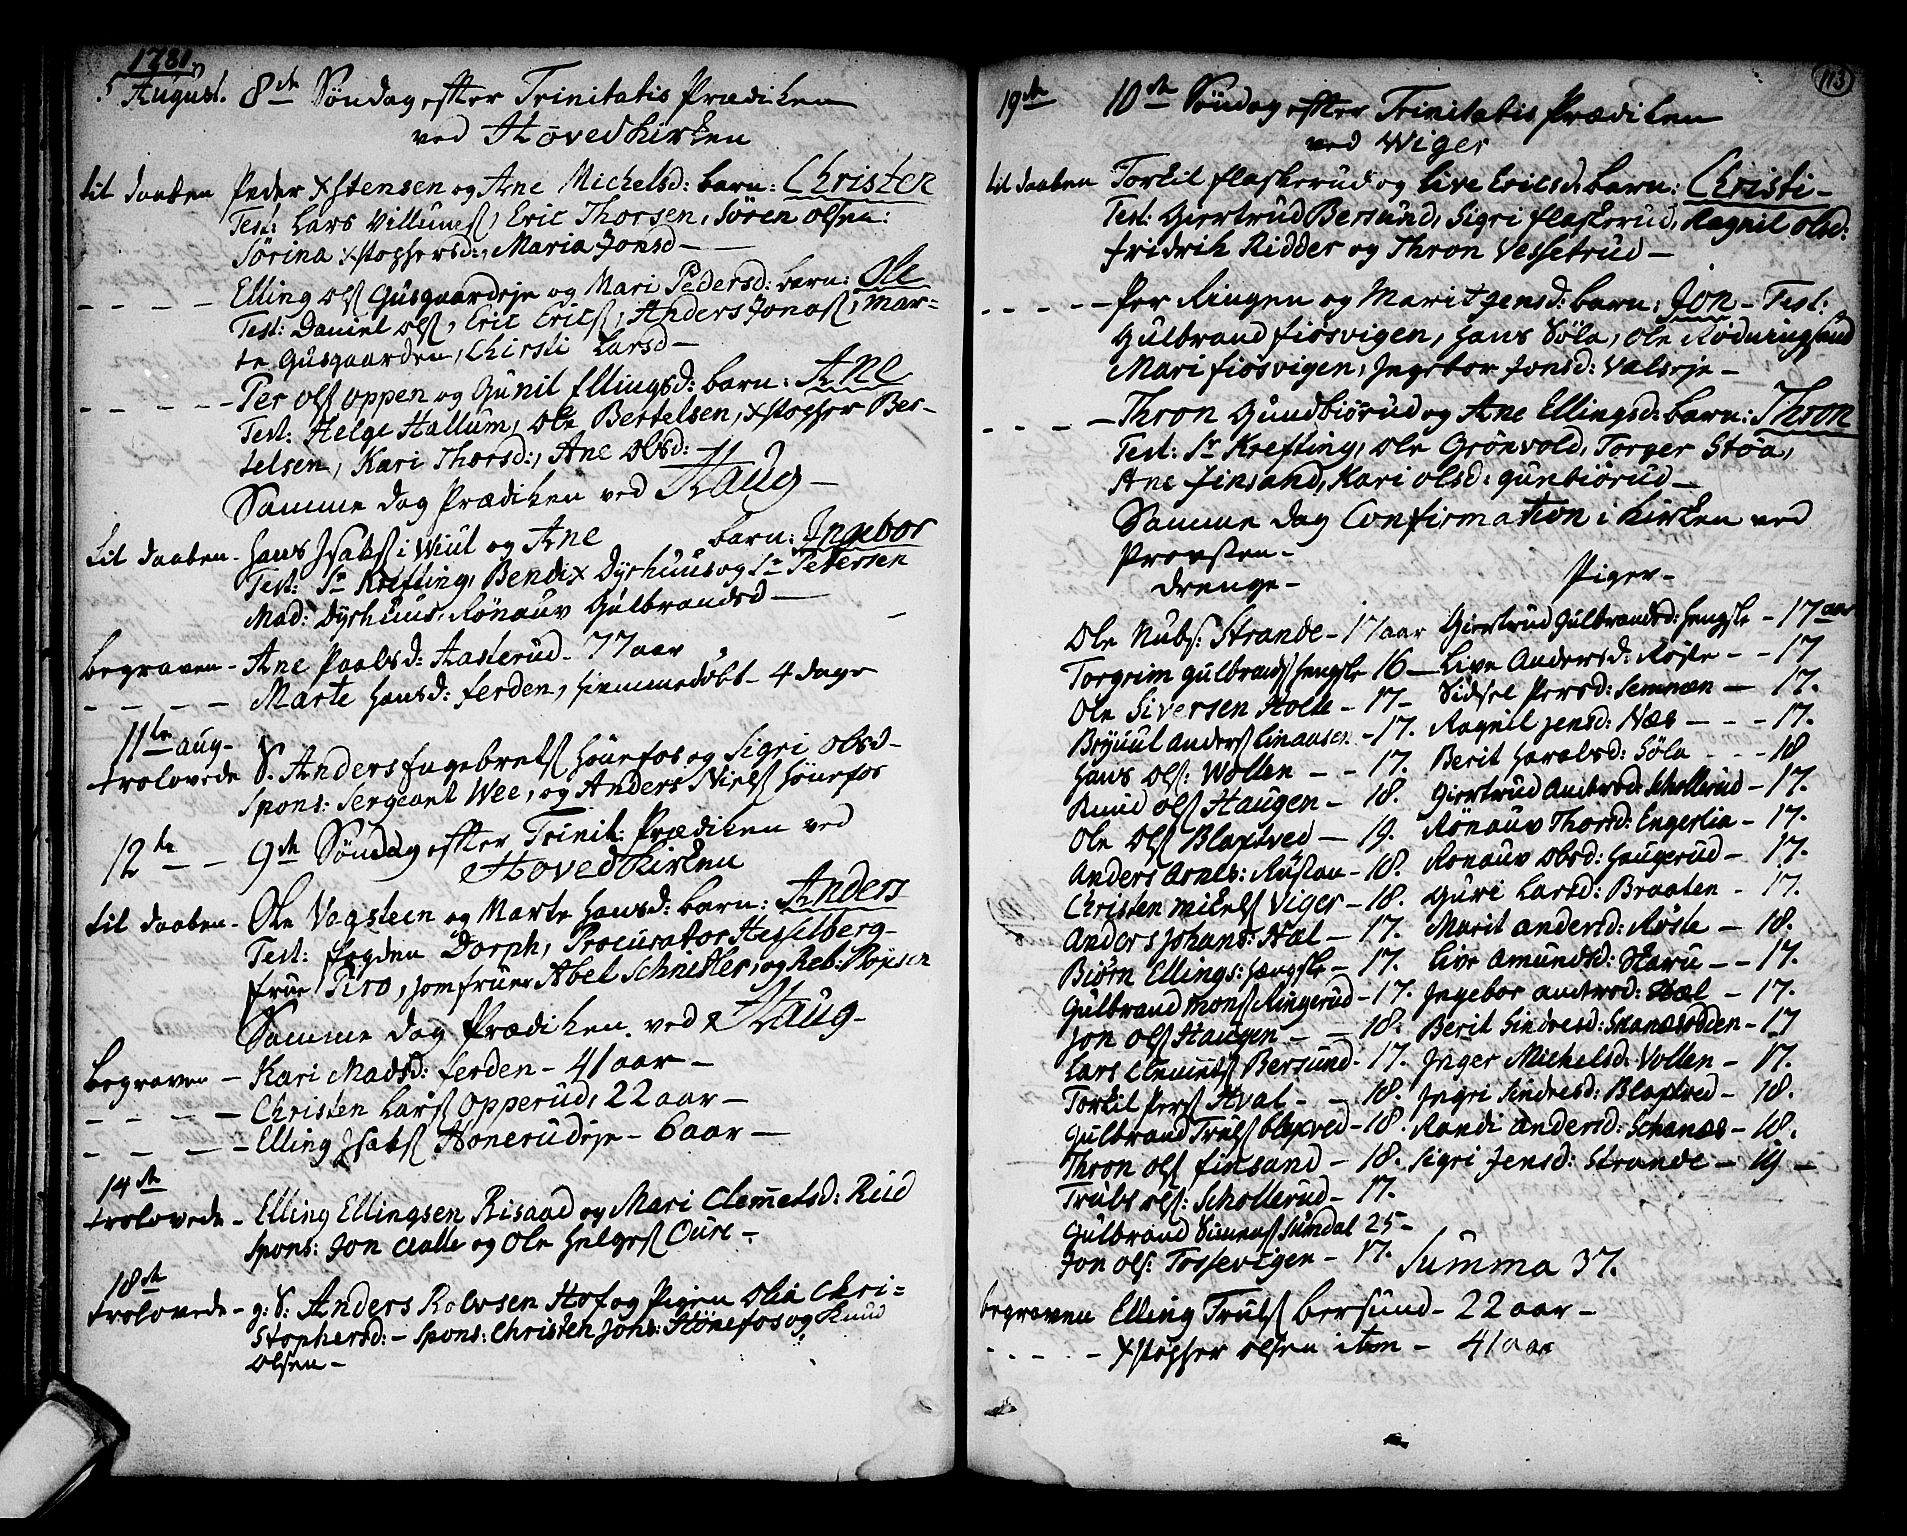 1781.
5 August. 8de Søndag efter Trinitatis Prædiken
ved Hovedkirken
til daaben Peder Xstensen og Ane Michelsd: barn: Christen
Test: Lars Villums, Eric Thorsen, Søren olsen:
Sørina Xstophersd:, Maria Jonsd—
— — — Elling ols Gusgaardeje og Mari Pedersd: barn: Ole
Test: Daniel ols, Eric Erics, Anders Jonas, Mar-
te Gusgaarden, Chirsti Larsd—
— — — Per ols oppen og Gunil Ellingsd: barn: Ane
Test: Helge Hallum, Ole Bertelsen, Xstopher Ber-
telsen, Kari Thorsd:, Ane Olsd:
Samme dag Prædiken ved Haug—
til daaben- Hans Isaks i Wiul og Ane barn: Ingebor
Test: Sr Krefting, Bendix Dyrhuus og Sr Petersen
Mad: Dyrhuus, Rønauv Gulbrandsd—
begraven- Ane Paalsd: Aasterud- 77 aar
— — — Marte Hansd: ferden, hiemmedøbt- 4 dage
11te aug-
trolovede S. Anders Engebrets Hønefos og Sigri Olsd-
Spons: Sergeant Wee, og Anders Niels Hønefos
12te — 9de Søndag efter Trinit: Prædiken ved
Hovedkirken
til daaben- Ole Vagsteen og Marte Hansd: barn: Anders
Test: fogden Dorph, Procurator Hesselberg-
frue Piro, jomfruer Abel Schnitler, og Reb:
Samme dag Prædiken ved Haug-
begraven — Kari Madsd: ferden- 41 aar —
— — — Christen Lars Opperud, 22 aar —
— — — Elling Isaks Honerudeje- 6 aar —
14de
trolovede- Elling Ellingsen Risaad og Mari Clemetsd: Rud
Spons: Jon Aalle og Ole Helges Oure-
18de
trolovede- g: S: Anders Rolvsen Hof og Pigen Olia Chri=
stophersd:- Spons: Christen Jons: Hønefos og Knud
Olsen—
113
19de 10de Søndag efter Trinitatis Prædiken
ved Wiger
til daaben Torkil flaskerud og Live Ericsd: barn: Christi-
Test: Giertrud Bersund, Sigri flaskerud, Ragnil olsd:
fridrik Ridder og Thron Vessetrud—
— — — Per Ringen og Marit Jensd: barn: Jon- Test:
Gulbrand fiøsvigen, Hans Søla, Ole Rødningsand
Mari fiøsvigen, Ingebor Jonsd: Valseje-
— — — Thron Gundbiørud og Ane Ellingsd: barn: Thron
Test: Sr Krefting, Ole Grønvold, Torger Støa,
Ane finsand, Kari olsd: gunbiørud—
Samme dag Confirmation i kirken ved
Provsten-
Drenge- Piger-
Ole Nubs: Strande- 17 aar Giertrud Gulbrandsd: Hengsle- 17 aar
Torgrim gulbrands Hengsle 16— Live Andersd: Røsle- - 17
Ole Siversen Holte- 17- Sidsel Persd: Semmen— 17.
Bryuul Anders Linaasen- 17. Ragnil Jensd: Næs- - - 17.
Hans Ols: Wollen - - 17. Berit Haralsd: Søla - - - 18
Knud ols Haugen- 18. Giertrud Amtsd: Schollerud- 17.
Ole Ols Blaxtved— 19. Rønauv Thorsd: Engerlia- 17.
Anders Arnes: Rustan- 18. Rønauv Olsd: Haugerud- 17.
Christen mikels Viger- 18. Guri Larsd: Braaten- 17.
Anders Johans: Hval- 17. Marit andersd: Røsle- 18.
Biørn Ellings: Hængsle- 17. Live Amundsd: Skaru- - 17.
Gulbrand Thons Ringerud- 17. Ingebor amtsd: Hval- 17.
Jon ols Haugen- - 18. Berit Sindresd: Skanesodden- 17
Lars Clemets Bersund- 17. Inger Michelsd: Vollen- 17.
Torkil Pers Hval- - 18. Ingri Sindresd: Blaxtved- 18.
Gulbrand Truls blaxved- 18. Randi andersd: Schanæs- 18.
Thron ols finsand- 18. Sigri Jensd: Strande- 19-
Trubs ols: Schollerud- 17.
Gulbrand Simens Sundal 25-
Jon ols: Tossevigen- 17. Summa 37.
begraven Elling Truls bersund- 22 aar-
— — — Xstopher olsen item- 41 aar